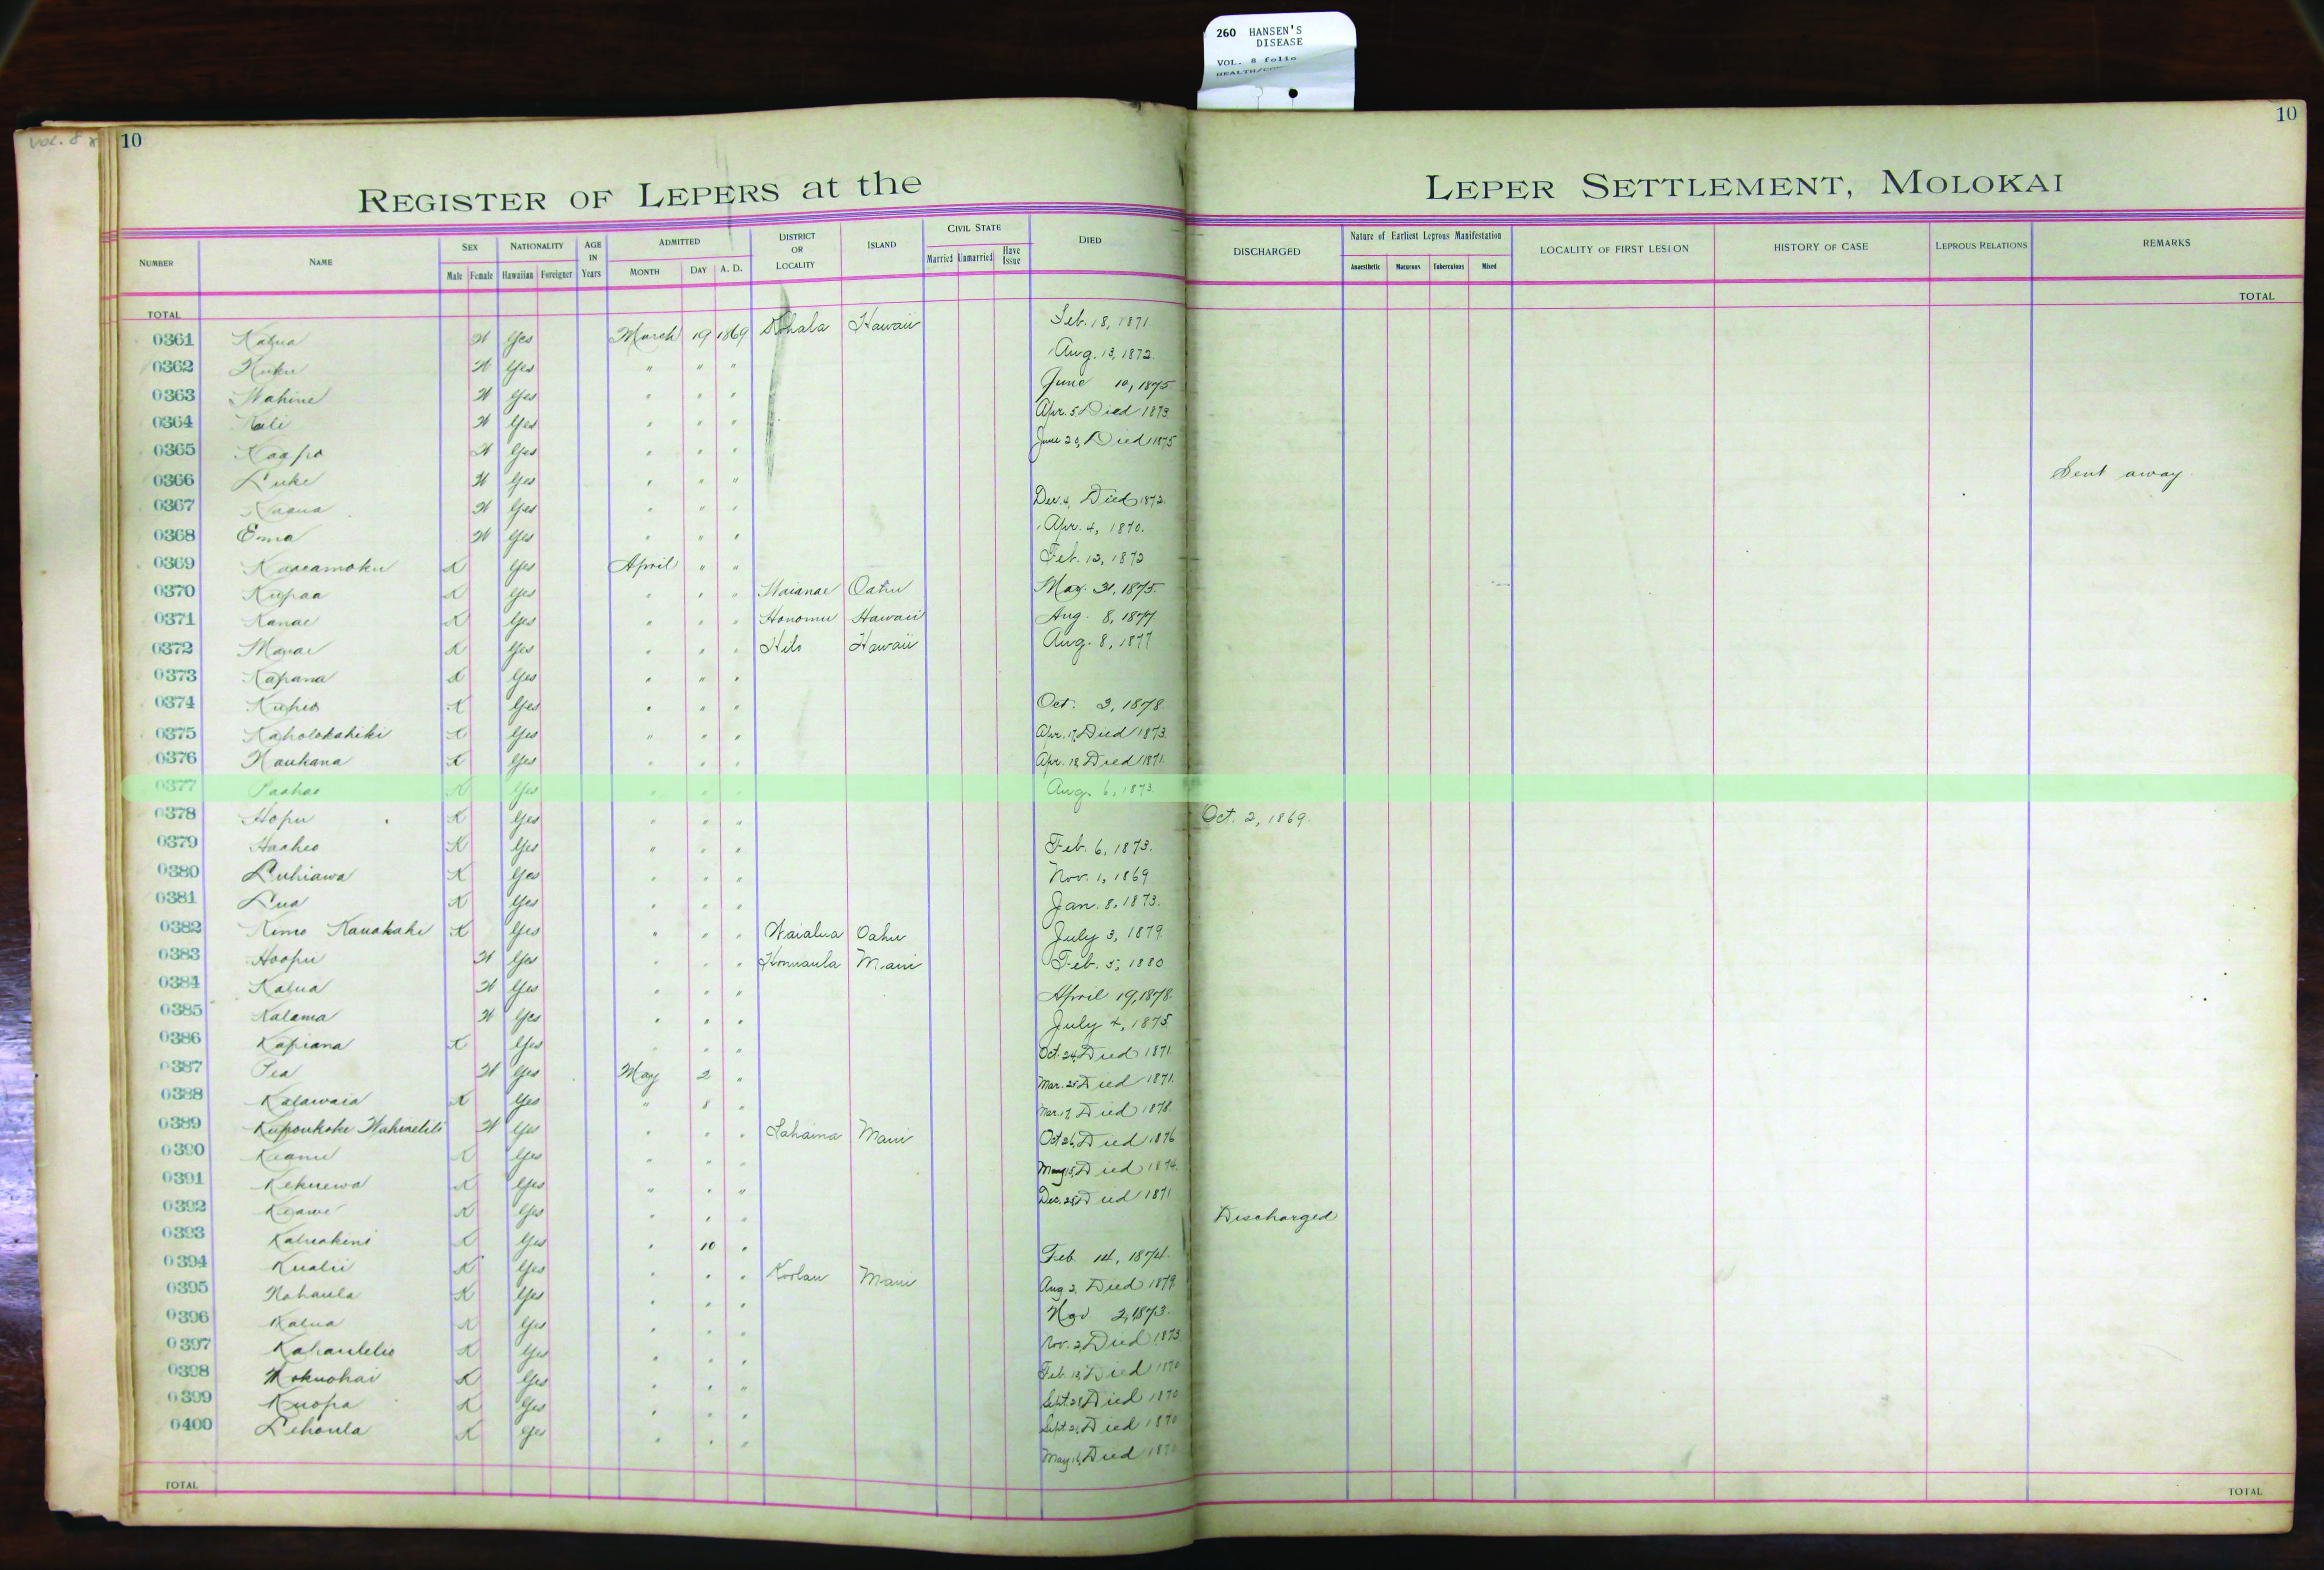 260 HANSEN'S
DISEASE
VOL. 8 folio
VOL. 8
10
10
REGISTER OF LEPERS at the LEPER SETTLEMENT, MOLOKAI
NUMBER NAME SEX Male Female NATIONALITY Hawaiian Foreigner AGE IN Years ADMITTED MONTH DAY A. D. DISTRICT OR LOCALITY ISLAND CIVIL STATE Married Unmarried Have Issue DIED DISCHARGED Nature of Earliest Leprous Manifestation Anaesthetic Macurous Tuberculous Mixed LOCALITY OF FIRST LESION HISTORY OF CASE LEPROUS RELATIONS REMARKS
TOTAL TOTAL
0361 Kalua W Yes March 19 1869 Kohala Hawaii Feb. 18, 1871
0362 W Yes " " " Aug. 13, 1872.
0363 Wahine W Yes " " " June 10, 1875
0364 Kali W Yes " " " Apr. 5 Died 1873
0365 Kaapo W Yes " " " June 29, Died 1875
0366 Luke W Yes " " " Sent away
0367 W Yes " " " Dec. 4, Died 1872.
0368 Emma W Yes " " " Apr. 4, 1870.
0369 Kaaeamoku K Yes April " " Feb. 12, 1872
0370 Kupaa K Yes " " " Waianae Oahu May. 31, 1875.
0371 Kanae K Yes " " " Honomu Hawaii Aug. 8, 1877
0372 K Yes " " " Hilo Hawaii Aug. 8, 1877
0373 Kapana K Yes " " "
0374 Kuheo K Yes " " " Oct. 3, 1878.
0375 Kaholokahiki K Yes " " " Apr. 17, Died 1873.
0376 Naukana K Yes " " " Apr. 18 Died 1871.
0377 Paahao K Yes " " " Aug. 6, 1873.
0378 Hopu K Yes " " " Oct. 2, 1869.
0379 Haaheo K Yes " " " Feb. 6, 1873.
0380 Luhiawa K Yes " " " Nov. 1, 1869
0381 Lua K Yes " " " Jan. 8, 1873.
0382 Kimo Kauakahi K Yes " " " Waialua Oahu July 3, 1879.
0383 Hoopii W Yes " " " Honuaula Maui Feb. 5, 1880
0384 Kalua W Yes " " " April 19, 1878.
0385 Kalama W Yes " " " July 4, 1875
0386 Kapiana K Yes " " " Oct. 24, Died 1871
0387 Pea W Yes May 2 " Mar. 25 Died 1871.
0388 Kalawaia K Yes " 8 " Mar. 17, Died 1878.
0389 W Yes " " " Lahaina Maui Oct 26, Died 1876
0390 Keanu K Yes " " " May 15, Died 1874.
0391 Kekuewa K Yes " " " Dec. 28, Died 1871
0392 Keawe K Yes " " " Discharged
0393 Kaluakini K Yes " 10 " Feb. 14, 1874.
0394 Kualii K Yes " " " Koolau Maui Aug 2, Died 1879.
0395 Nahaula K Yes " " " Nov 2, 1873.
0396 Kalua K Yes " " " Nov. 2, Died 1873
0397 K Yes " " " Feb. 18, Died 1870
0398 Mokuohai K Yes " " " Sept. 28, Died 1870
0399 Kuopa K Yes " " " Sept. 21, Died 1870
0400 Lehoula K Yes " " " May 16, Died 1870
TOTAL TOTAL